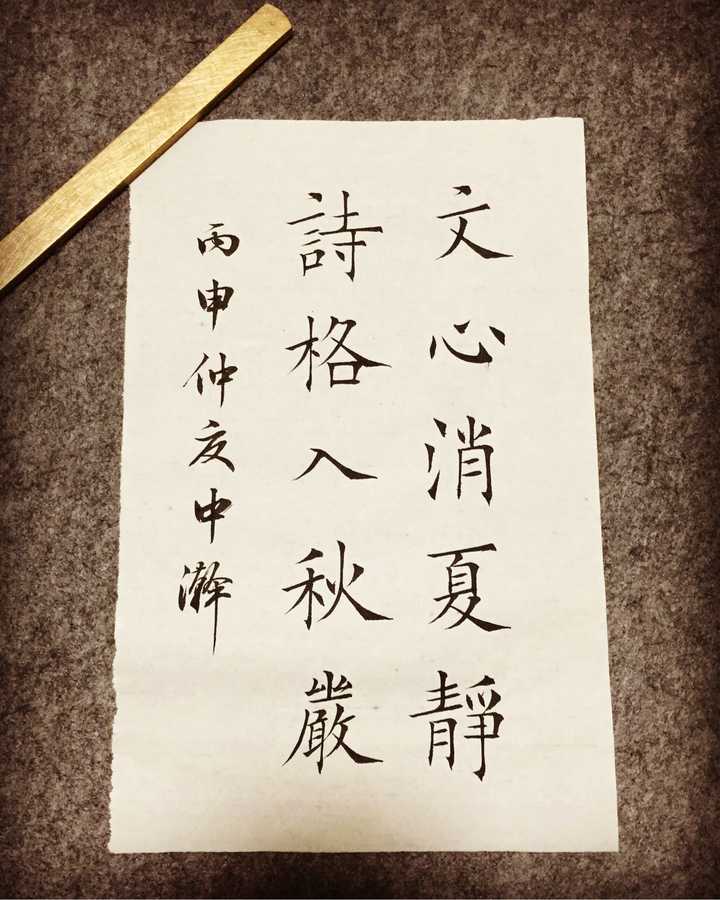 文心消夏靜
詩格入秋嚴
丙申仲夏中澣